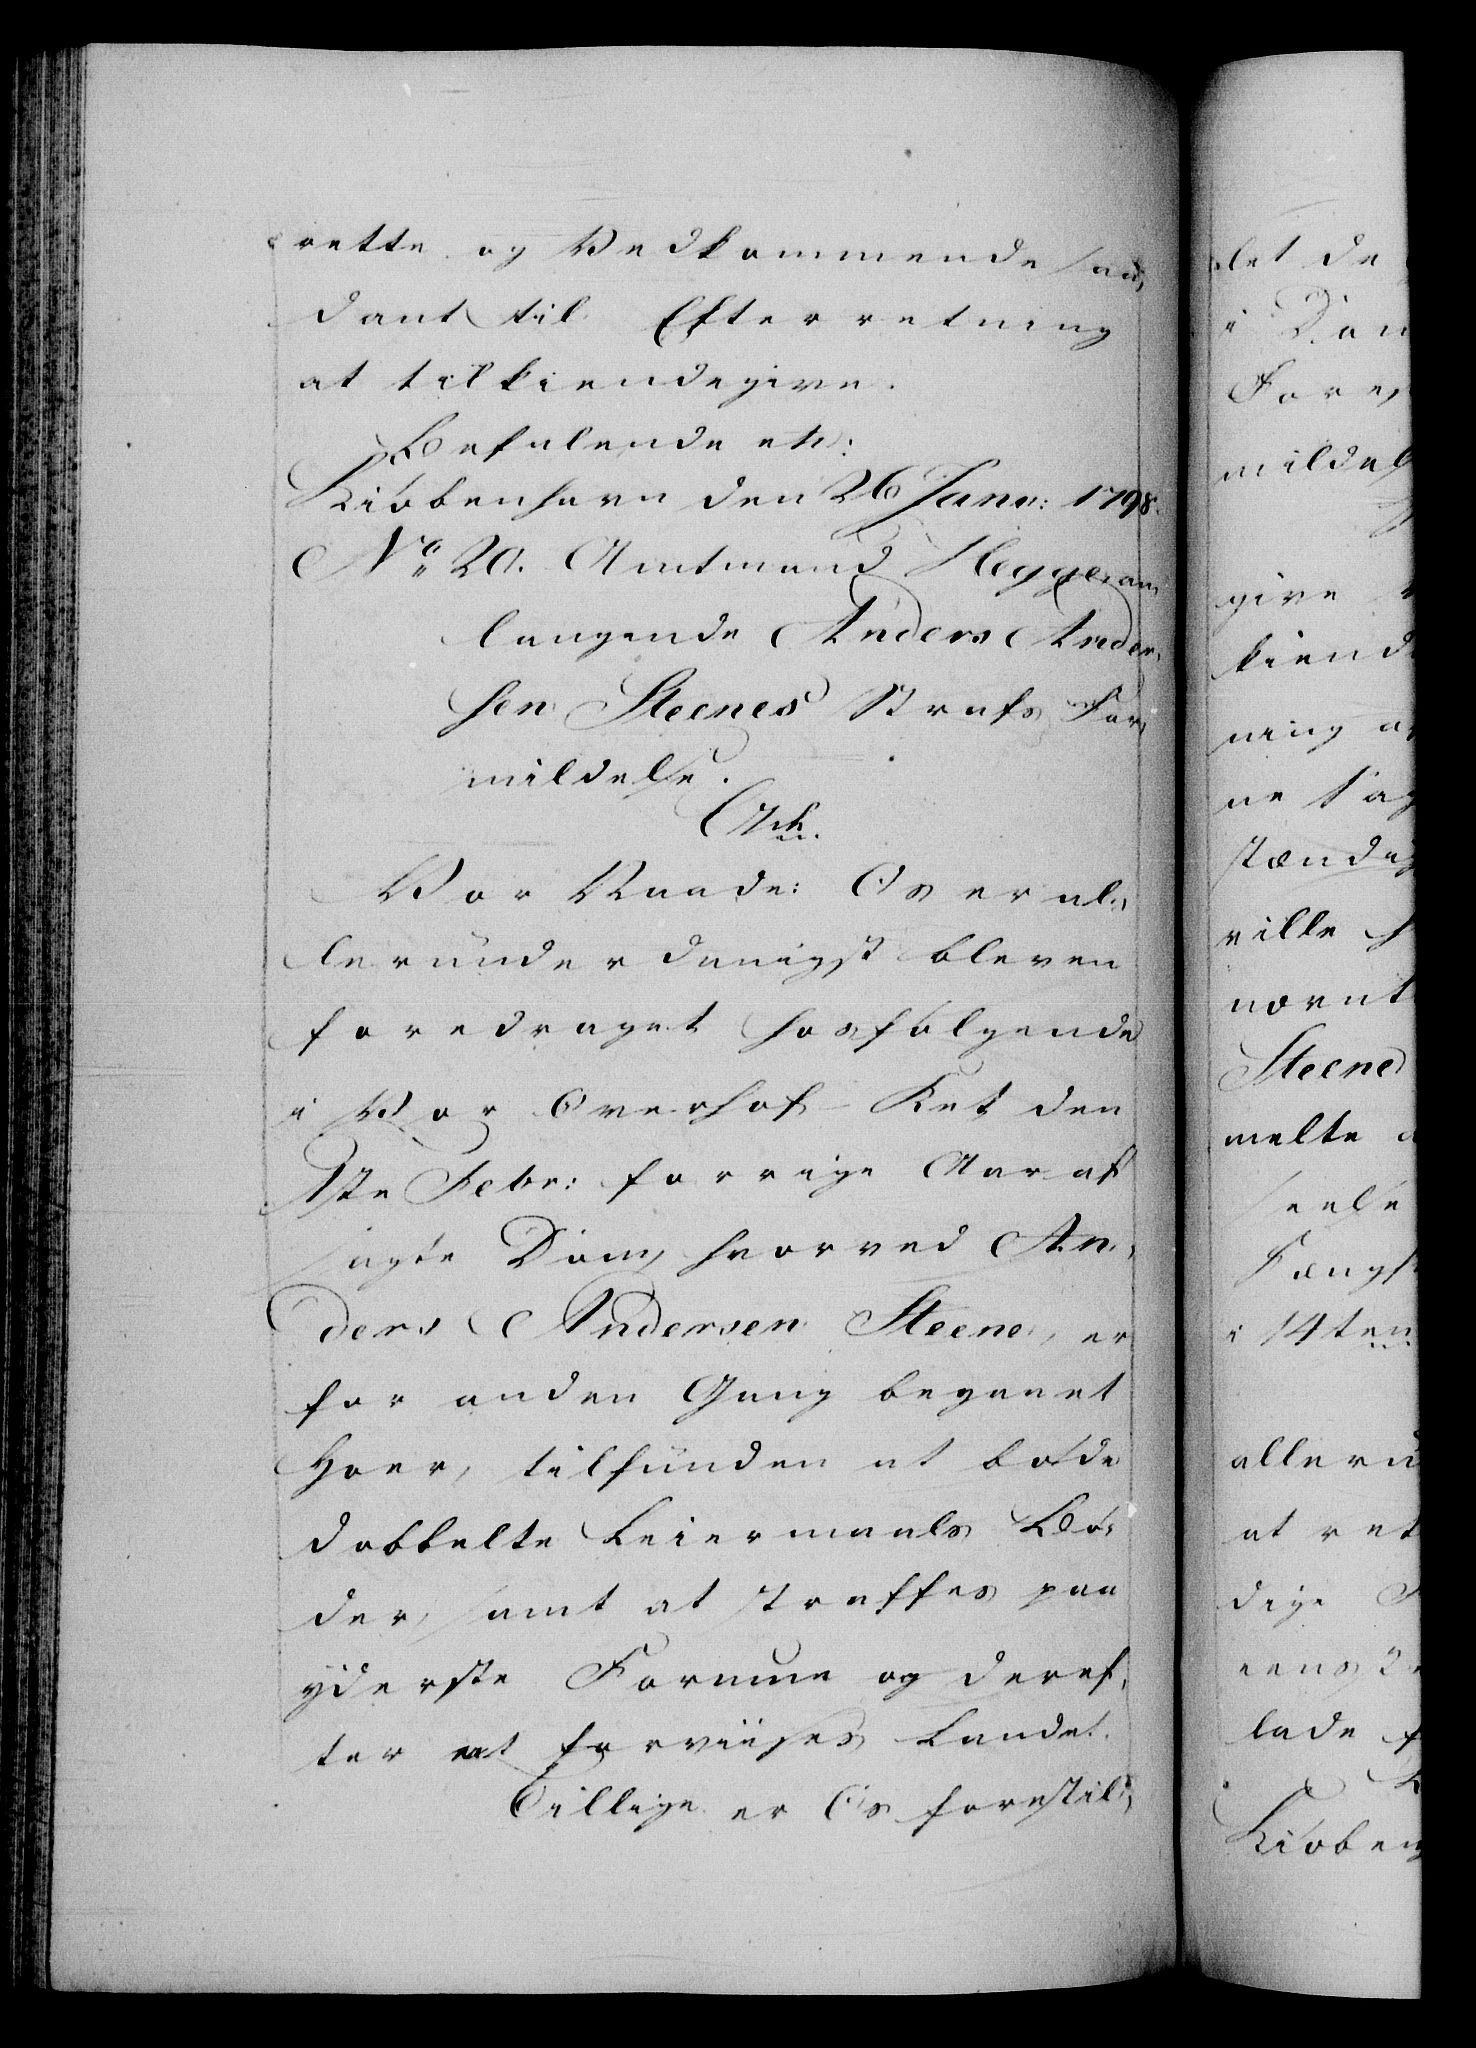 rette og Vedkommende saa-
dant til Efterretning
at tilkiendegive.
Befalende etc:
Kiøbenhavn den 26 Janv: 1798.
No 20. Amtmand Hegge, an-
langende Anders Ander-
sen Steenes Strafs For-
mildelse.
C 7de.
Vor Naade: Os er al-
lerunderdanigst bleven
foredraget hosfølgende
i Vor Overhof-Ret den
1ste Febr: forrige Aar af
sagde Dom, hvorved An-
ders Andersen Steene, er
for anden Gang begaaet
Hoer, tilfunden at bøde
dobbelte Leiermaals Bø-
der, samt at straffes paa
yderste Formue og deref-
ter at forviises Landet.
Tillige er Os forestil-
let de
i Dom
Fores
mildes
give
kiend
ning a
ne Sag
stændig
ville h
nævnt
Steene
melte a
Fængs
i 14ten
alleru
at ret
dige
eens
lade f
Kiøben